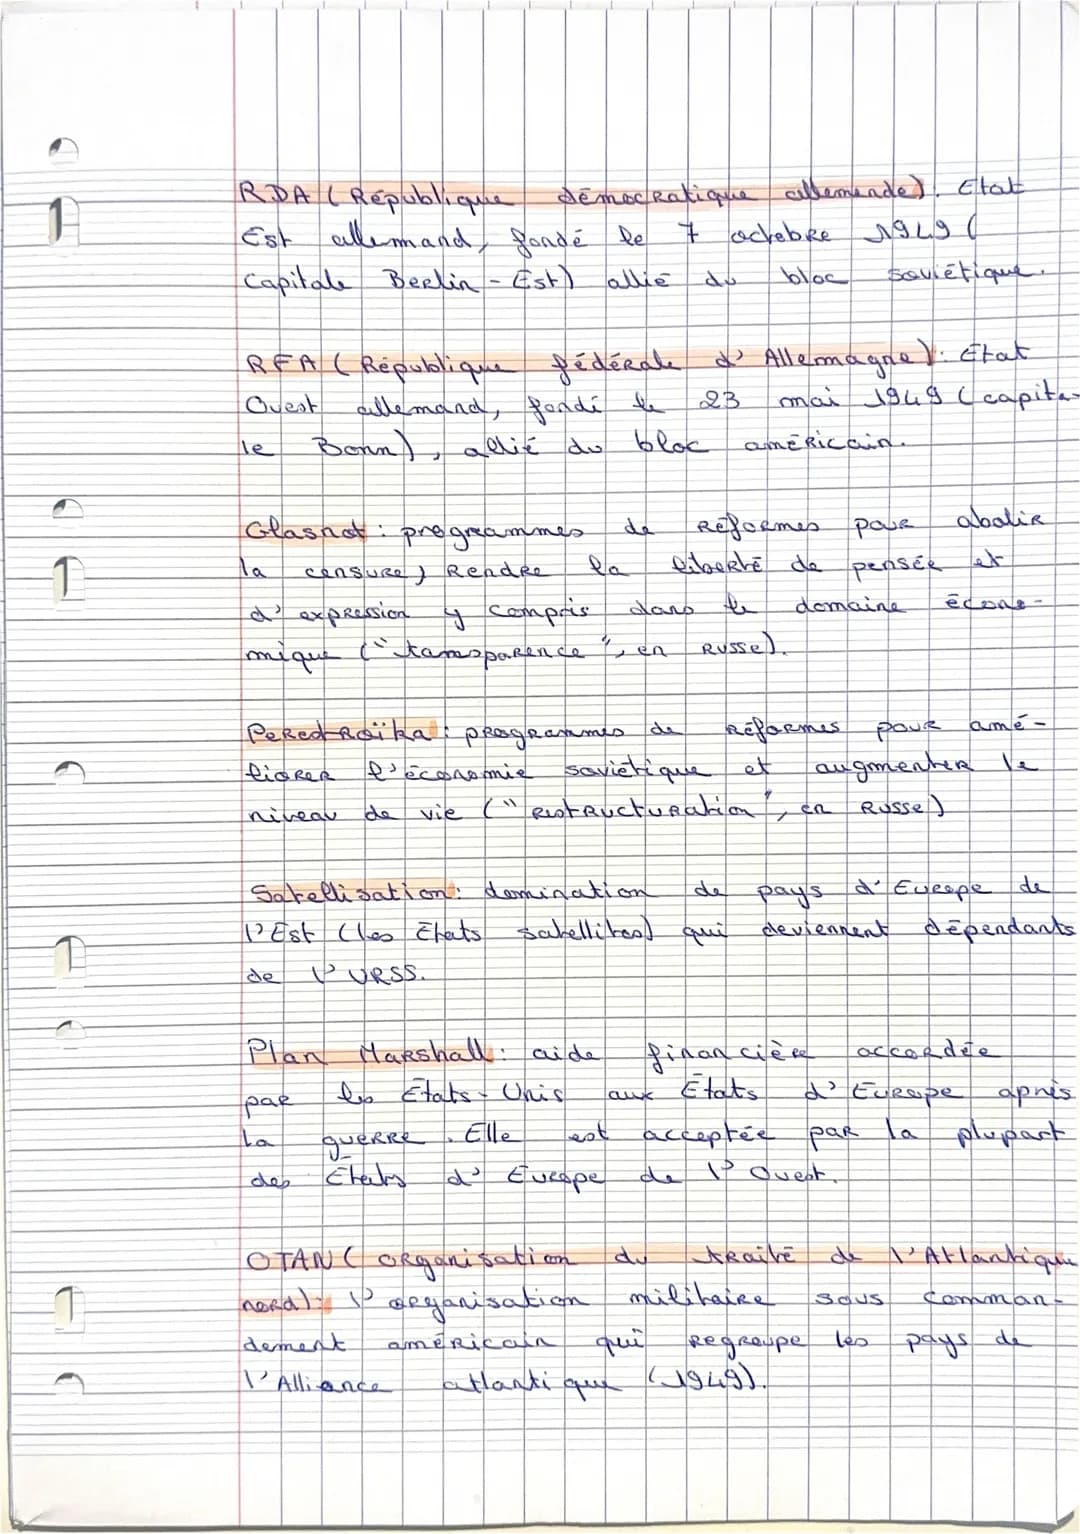 RDA (République démocratique allemande). Etat
Est allemand, fondé le 7 octobre 1949 (
Capitale Berlin-Est) allié du bloc soviétique.
RFA (République fédérale d'Allemagne): Etat
Ouest allemand, fondé le 23 mai 1949 (capita-
le Bonn), allié du bloc américain.
Glasnot : programmes de Réformes pour abolir
la censure, Rendre la liberté de pensée et
d'expression y compris dans le domaine écono-
mique ("tansparence", en Russe).
Peredroïka : programmes de Réformes pour amé-
liorer l'économie soviétique et augmenter le
niveau de vie ("restructuration", en Russe)
Satellisation: domination de pays d'Europe de
l'Est (les Etats satellites) qui deviennent dépendants
de l'URSS.
Plan Marshall: aide financière accordée
par les États-Unis aux États d'Europe après
La guerre. Elle est acceptée par la plupart
des Etats d'Europe de l'Ouest.
OTAN (Organisation du traité de l'Atlantique
nord): l'organisation militaire sous comman-
dement américain qui Regroupe les pays de
l'Alliance atlantique (1949).